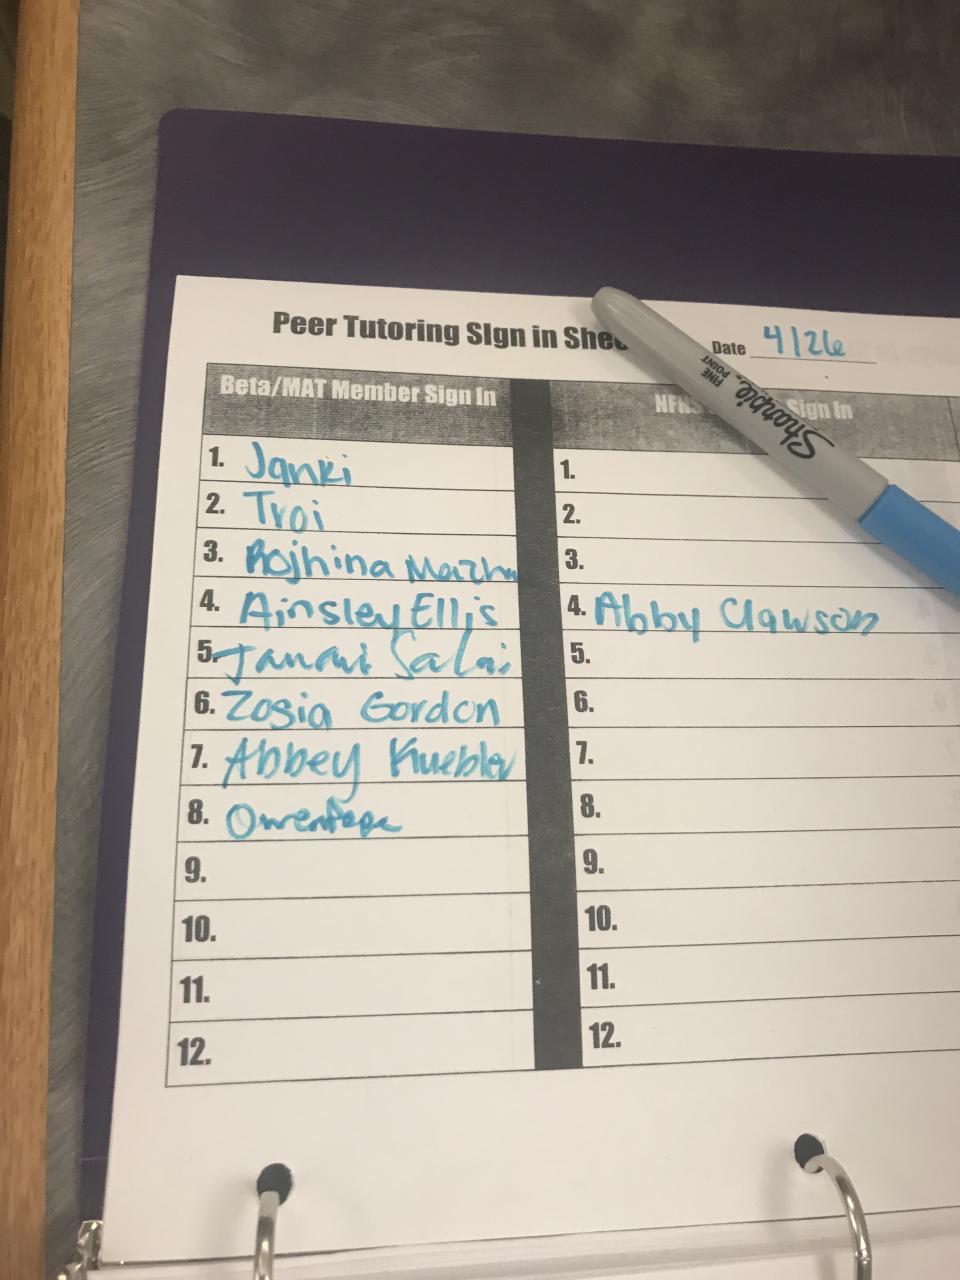 Peer Tutoring SIgn in Shee
Date 4/26
Beta/MAT Member Sign In
Sign In
FINE POINT
Sharpie
1. Janki
1.
2. Troi
2.
3. Rojhina
3.
4. Ainsley Ellis
4. Abby Clawson
5. Janani Salai
5.
6. Zosia Gordon
6.
7. Abbey Kuebler
7.
8. Owen
8.
9.
9.
10.
10.
11.
11.
12.
12.